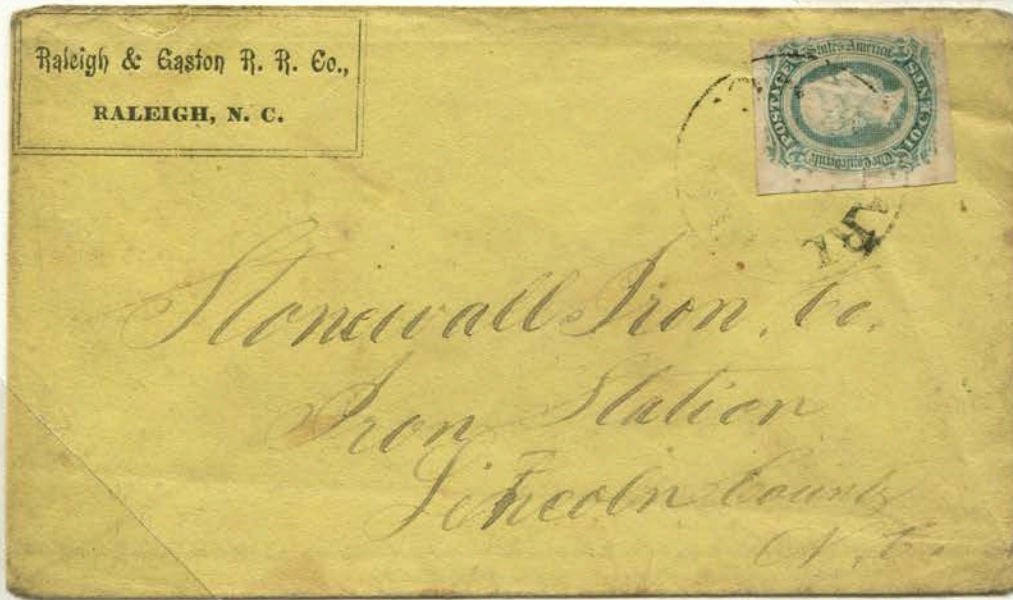 Raleigh & Gaston R. R. Co.,
RALEIGH, N. C.
POSTAGE
The Confederate
States America
TEN CENTS
Stonewall Iron, Co.
Iron Station
Lincoln County
N. C.